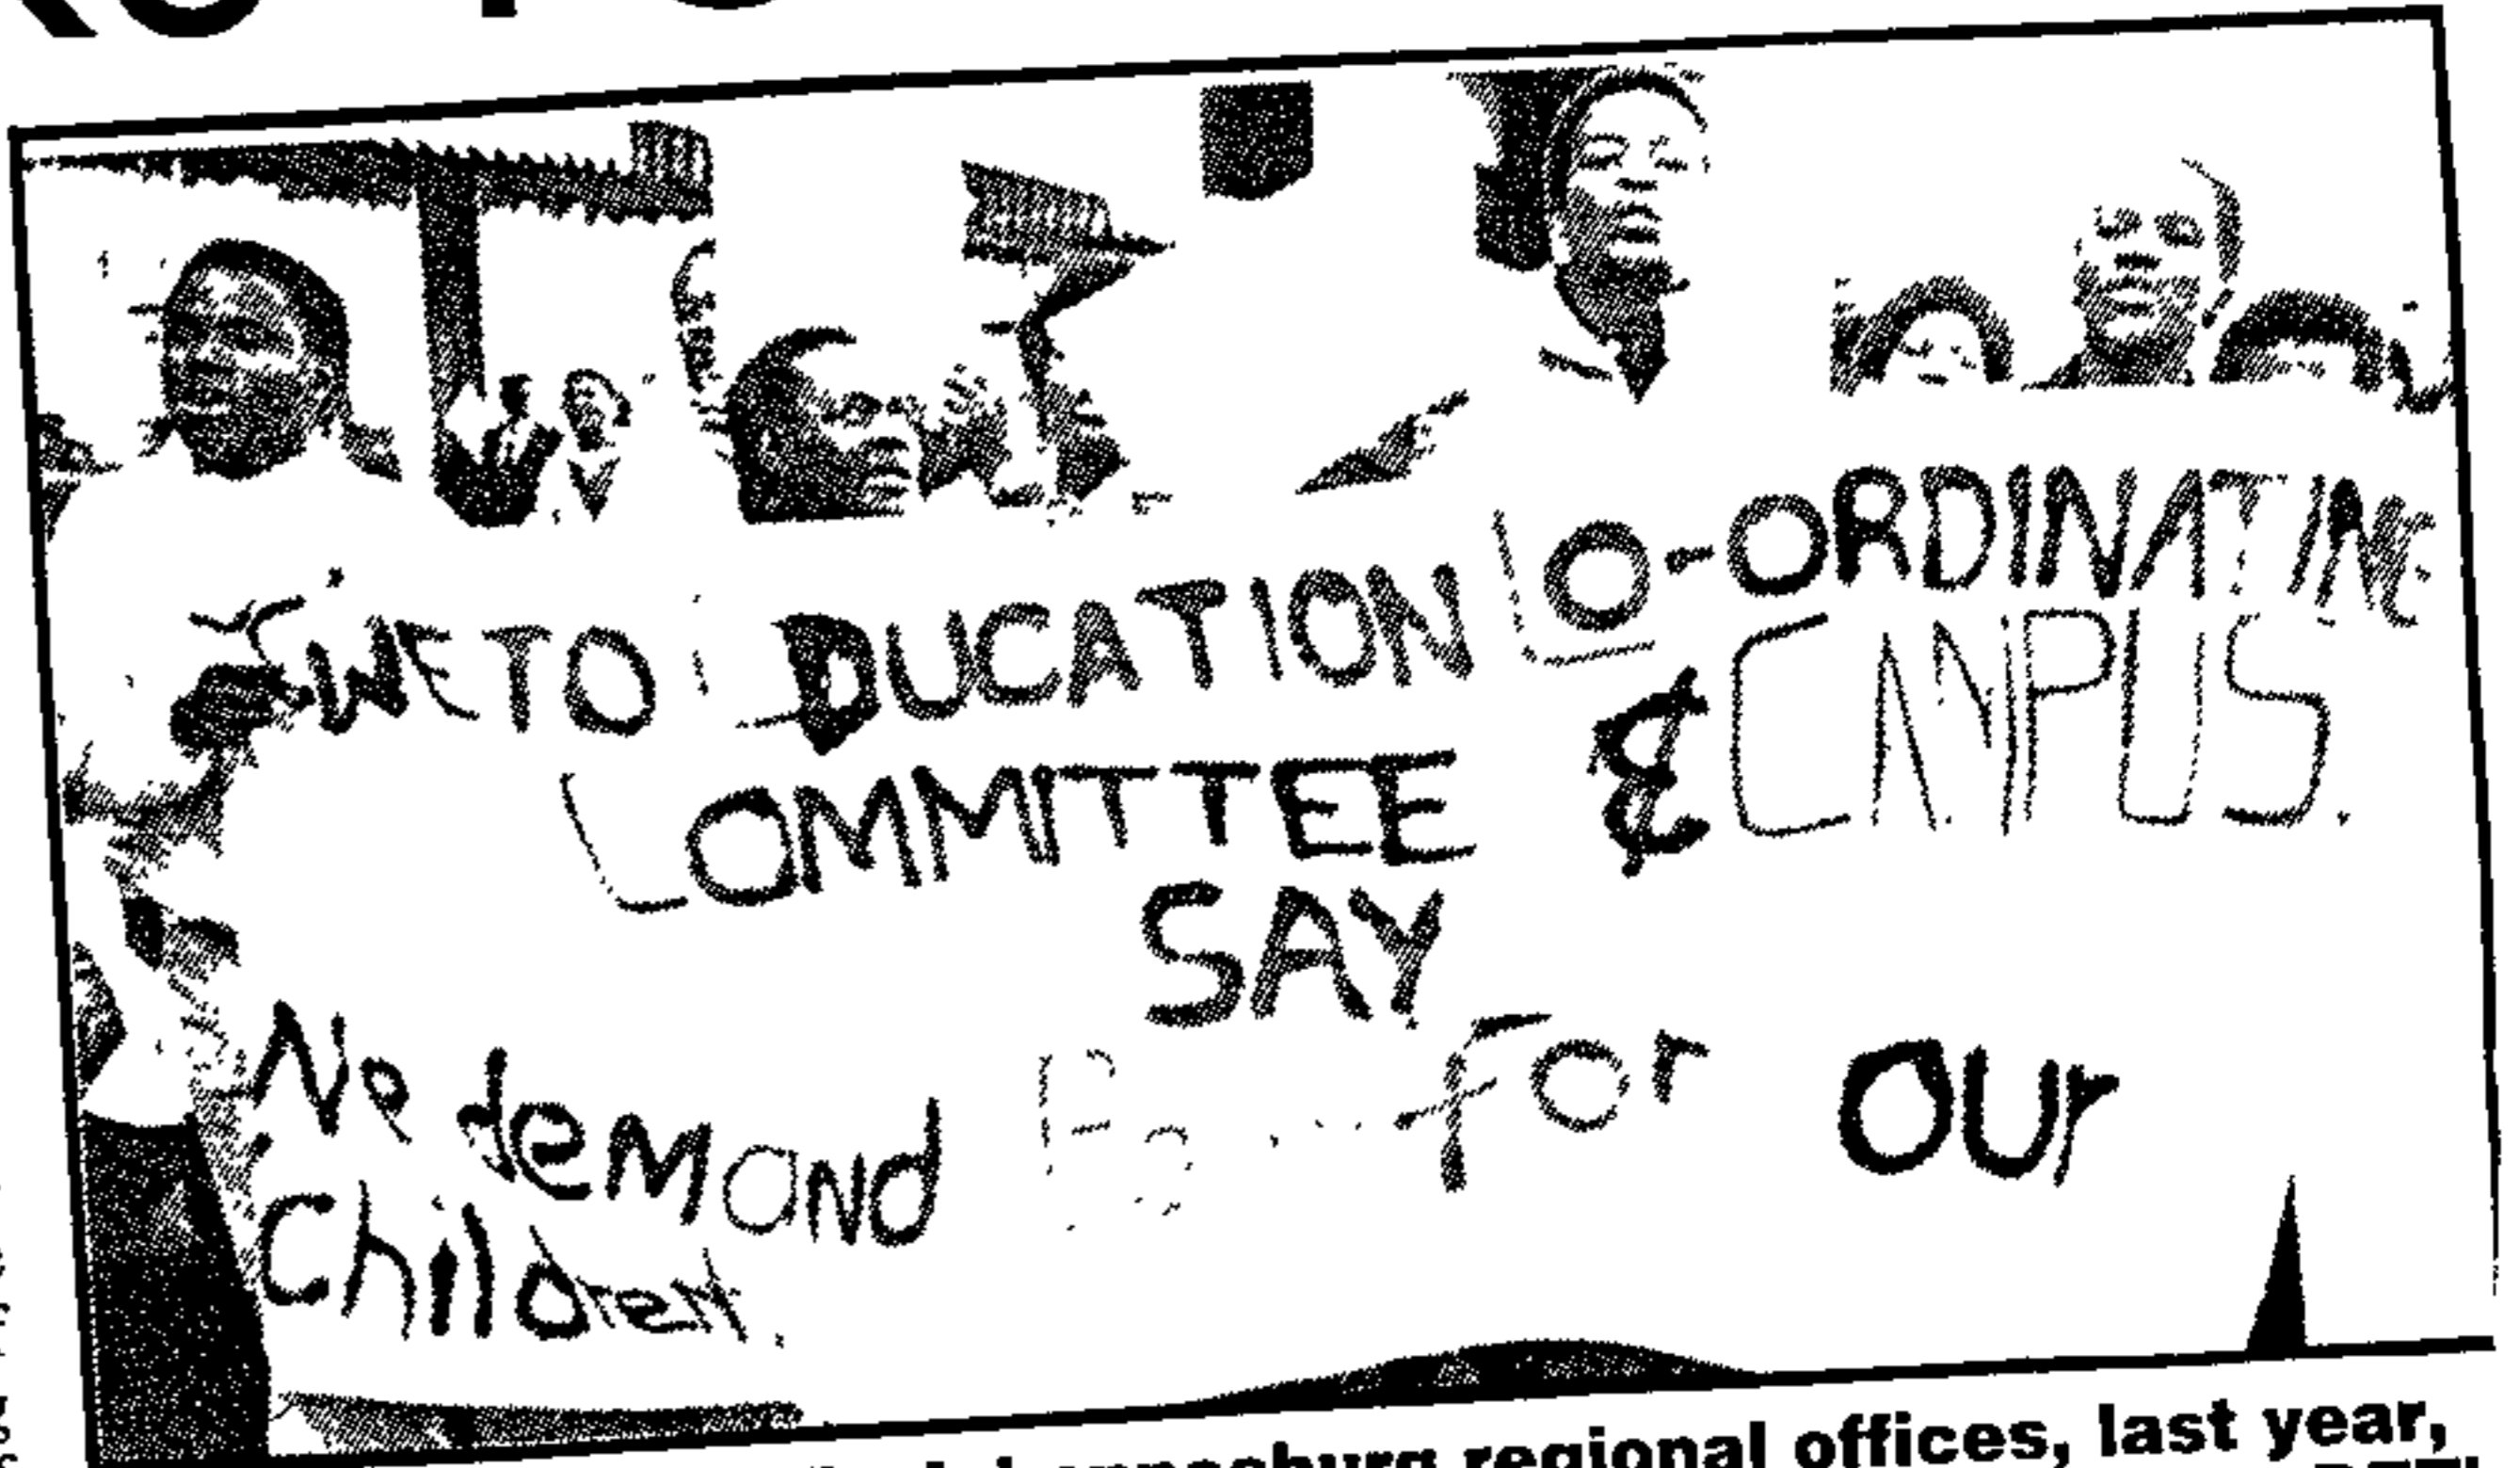 SOWETO EDUCATION CO-ORDINATING
COMMITTEE & CAMPUS.
SAY
We demand for our
Children.
regional offices, last year,